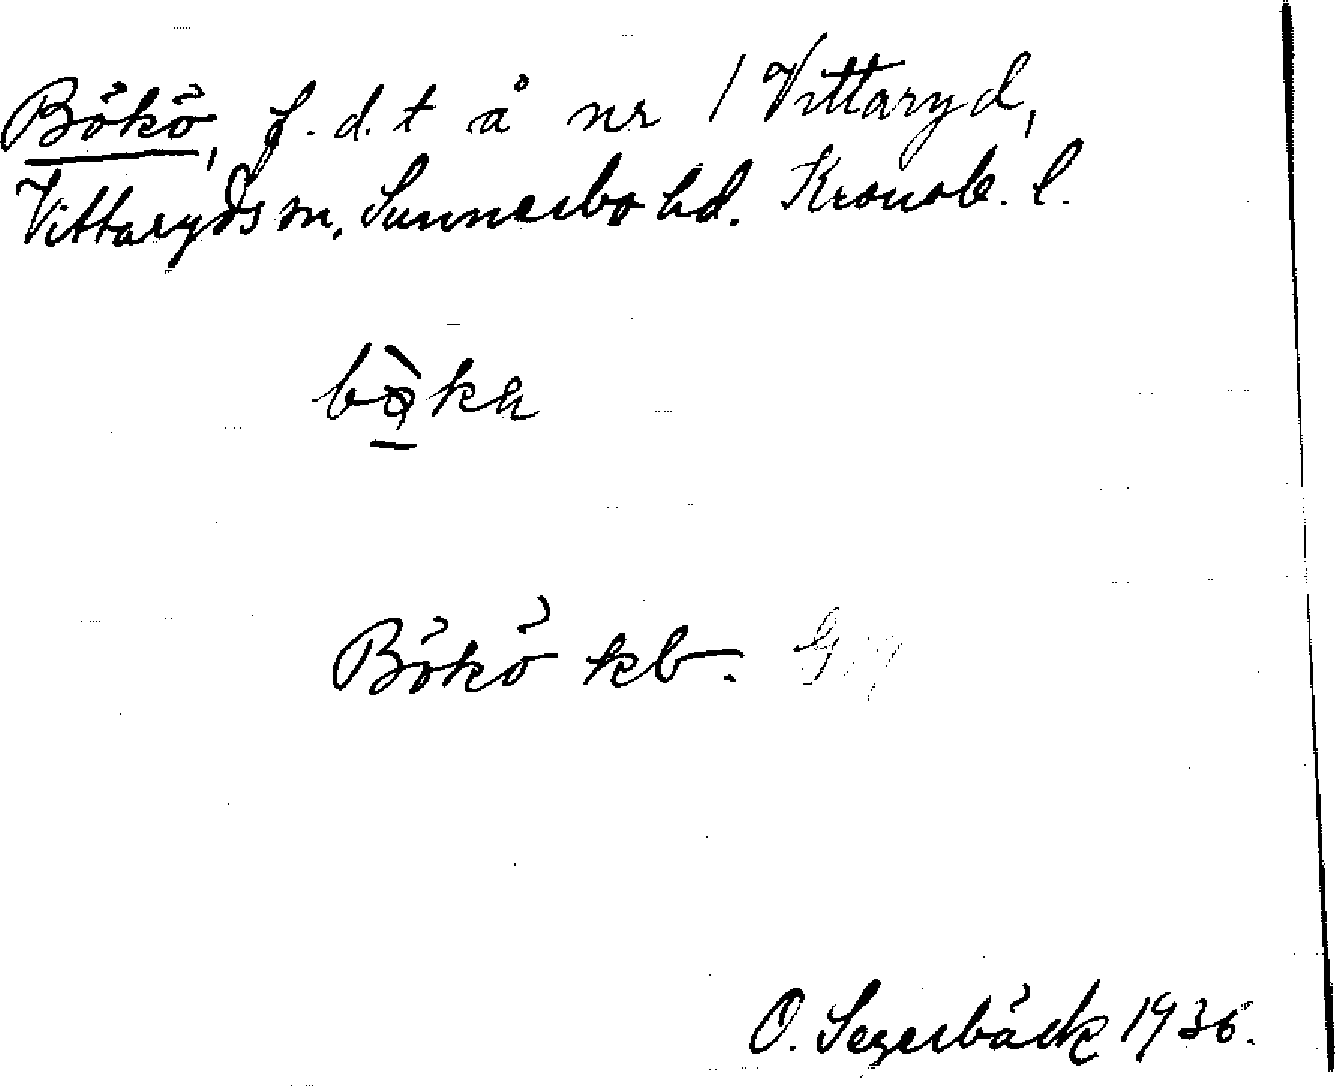 Bökö, f.d.t å nr 1 Vittaryd,
Vittaryds sn, Sunnerbo hd. Kronob. l.
Bökö kb.
O. Segerbäck 1936.